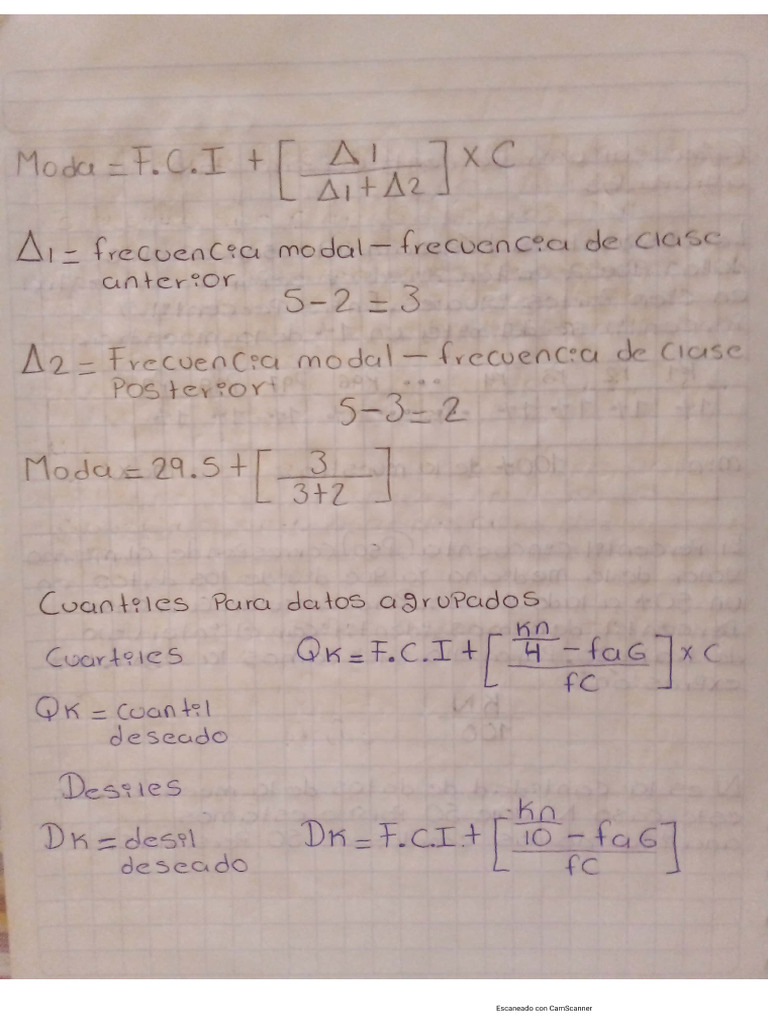 Moda = F.C.I + [ Δ1 / Δ1 + Δ2 ] x C
Δ1 = frecuencia modal - frecuencia de clase
anterior
5 - 2 = 3
Δ2 = Frecuencia modal - frecuencia de clase
Posterior
5 - 3 = 2
Moda = 29.5 + [ 3 / 3+2 ]
Cuantiles Para datos agrupados
Cuartiles QK = F.C.I + [ Kn/4 - faG / fC ] x C
QK = cuantil
deseado
Desiles
DK = desil DK = F.C.I + [ Kn/10 - faG / fC ]
deseado
Escaneado con CamScanner